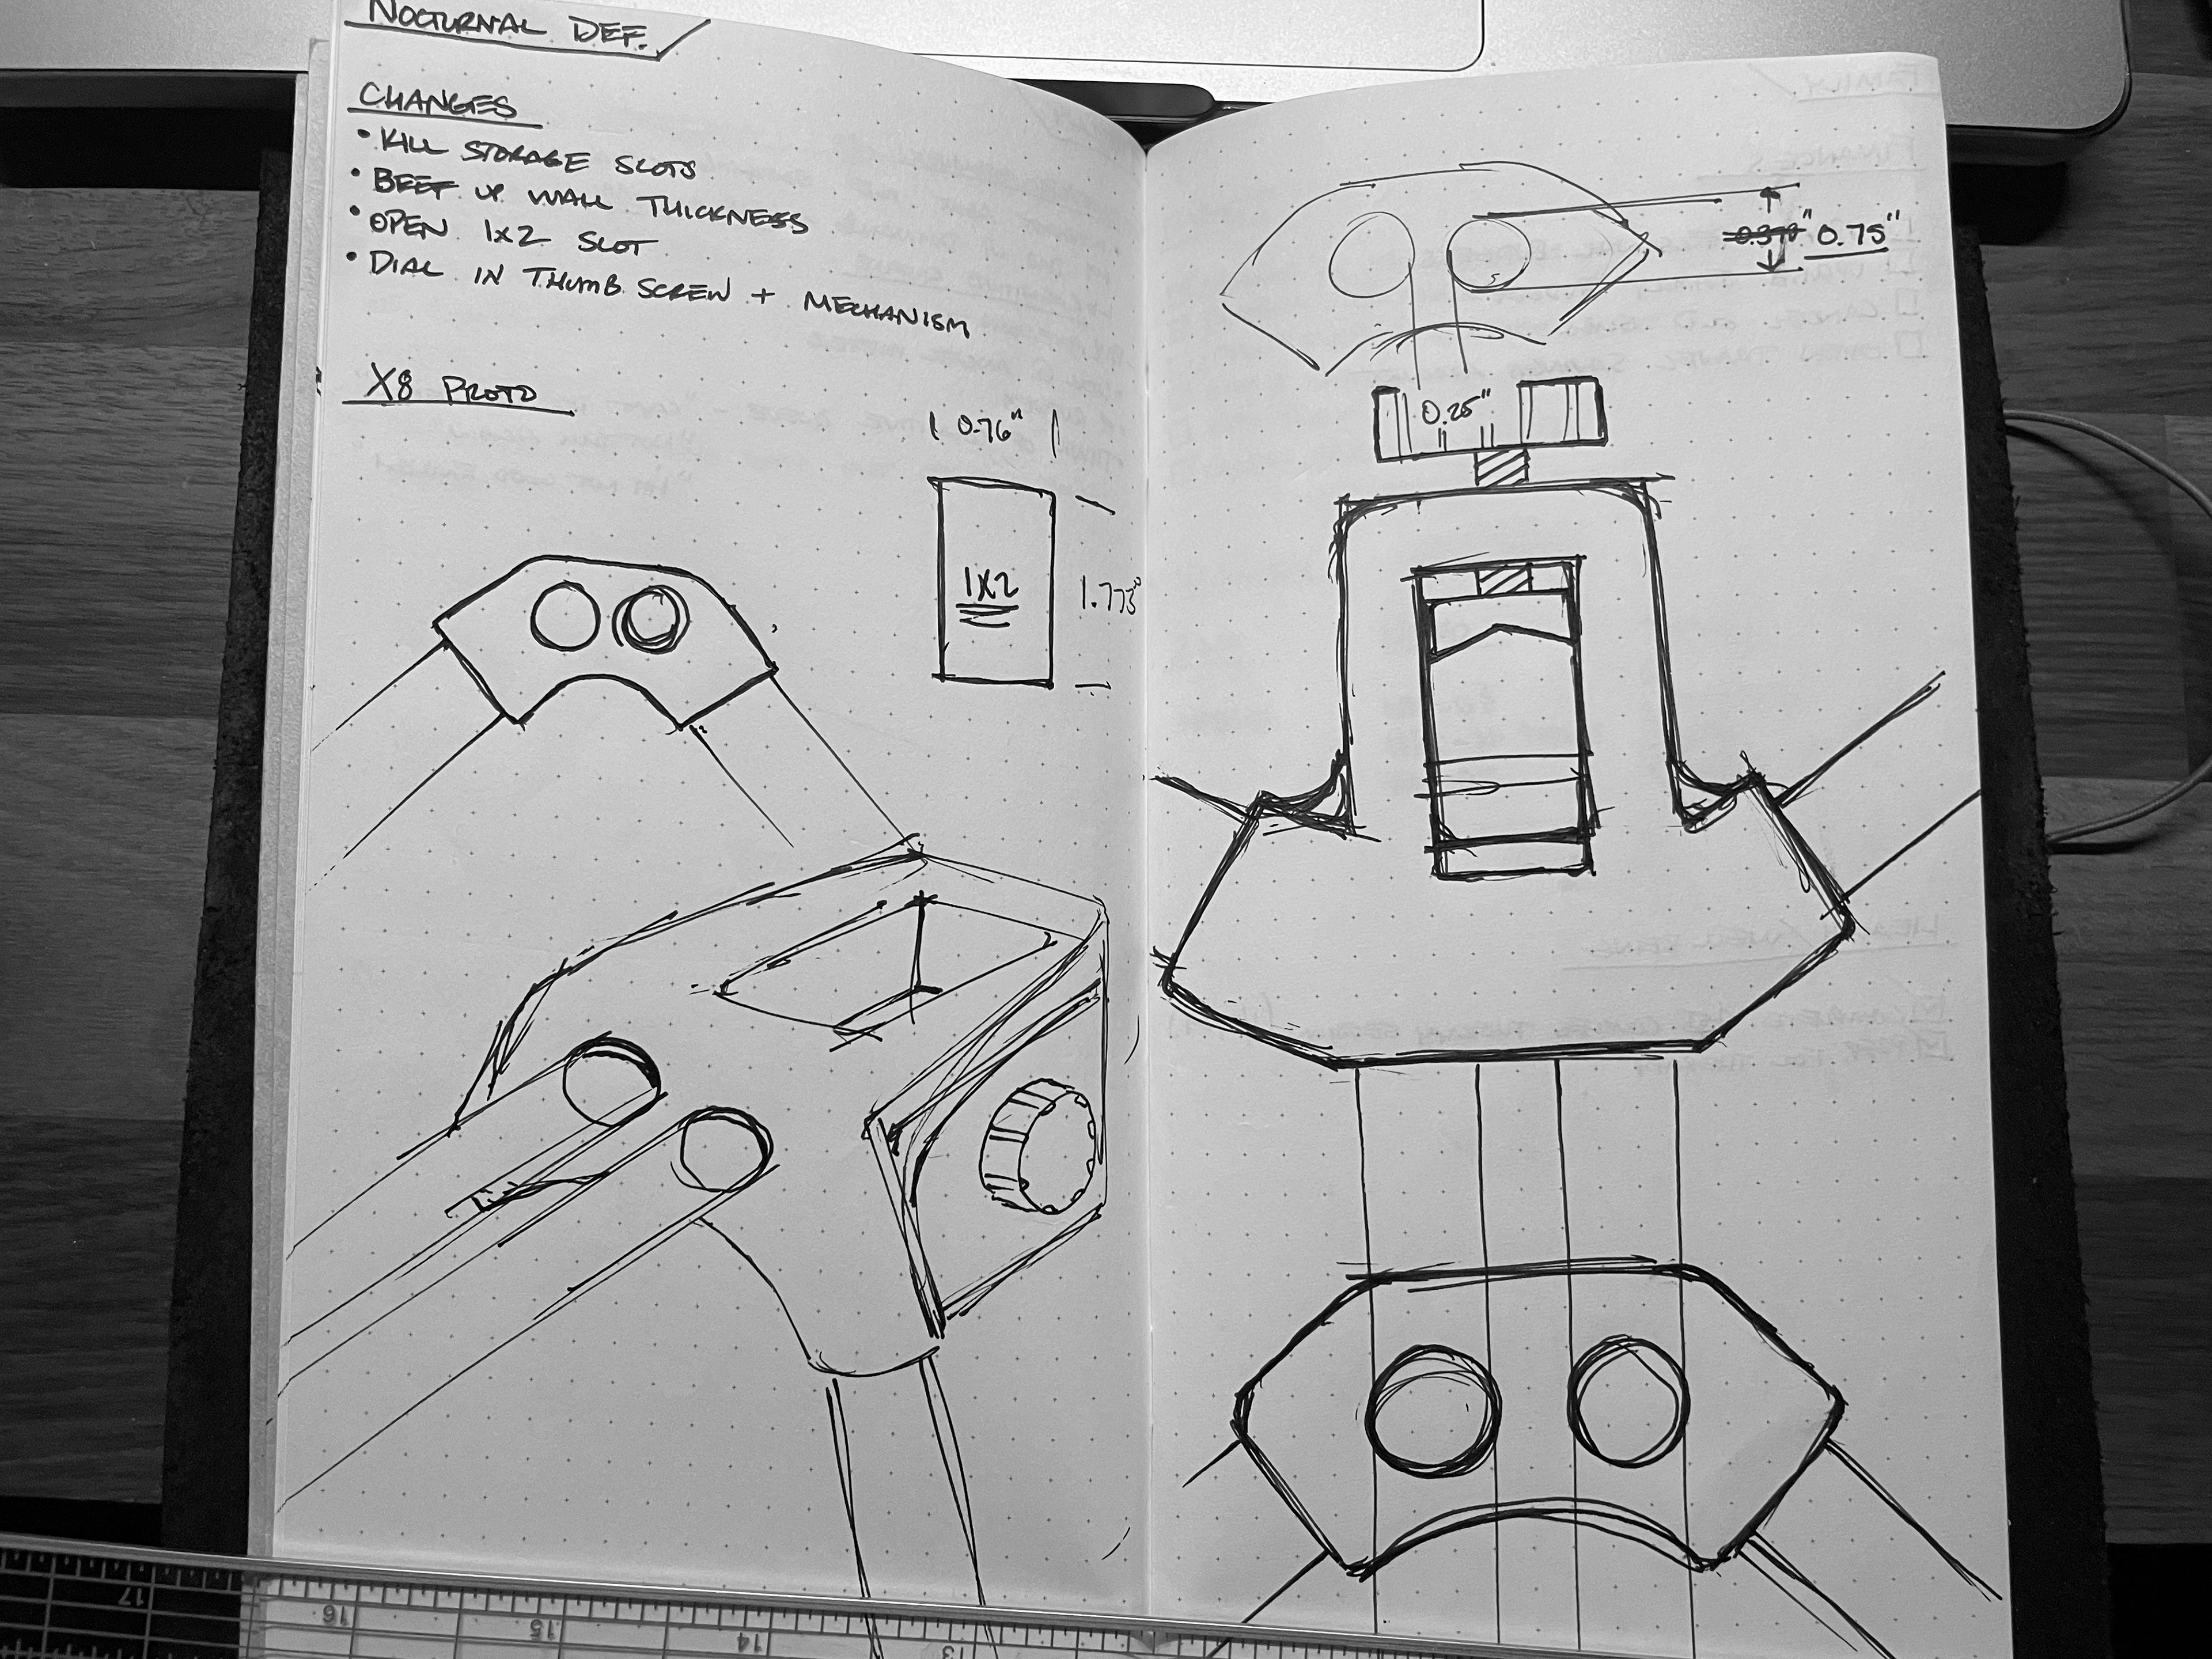 NOCTURNAL DEF.
CHANGES
• KILL STORAGE SLOTS
• BEEF UP WALL THICKNESS
• OPEN 1x2 SLOT
• DIAL IN THUMB SCREW + MECHANISM
X8 PROTO
0.76"
1X2
1.775"
0.75"
0.25"
17
16
15
14
13